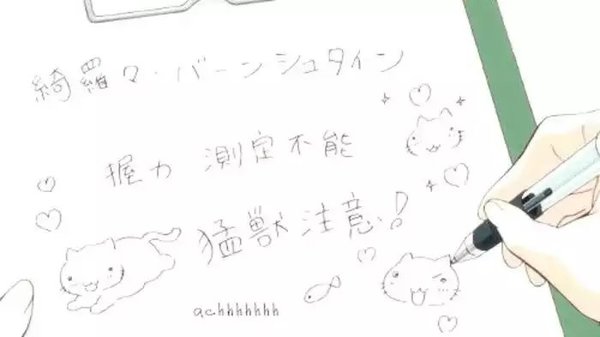 綺羅々・バーンシュタイン
握力 測定不能
猛獣注意!
achhhhhhh